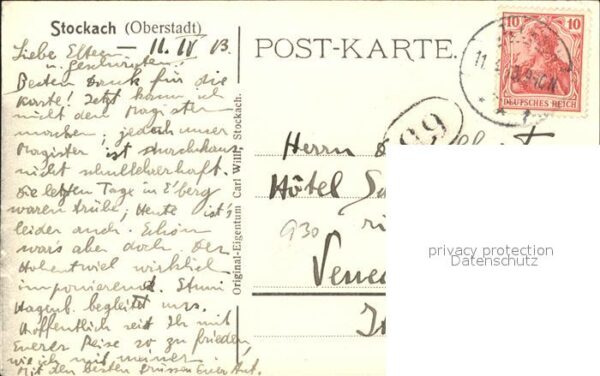 Stockach (Oberstadt)
— 11. IV 13.
Liebe Eltern
u. Geschwister!
Besten Dank für die
Karte! Jetzt kann ich
nicht den Magister
machen; jedoch unser
Magister ist durchaus
nicht schullehrerhaft.
Die letzten Tage in E'berg
waren trübe; Heute ist's
leider auch. Schön
war's aber doch. Der
Hohentwiel wirklich
imponierend.
Hagenb. begleitet uns.
Hoffentlich seit Ihr mit
Eurer Reise so zufrieden
wie ich mit meiner
Mit den besten Grüssen Euer
Original-Eigentum Carl Willi, Stockach.
POST-KARTE.
10 10
DEUTSCHES REICH
99
Herrn
Hôtel
930
Vene
privacy protection
Datenschutz